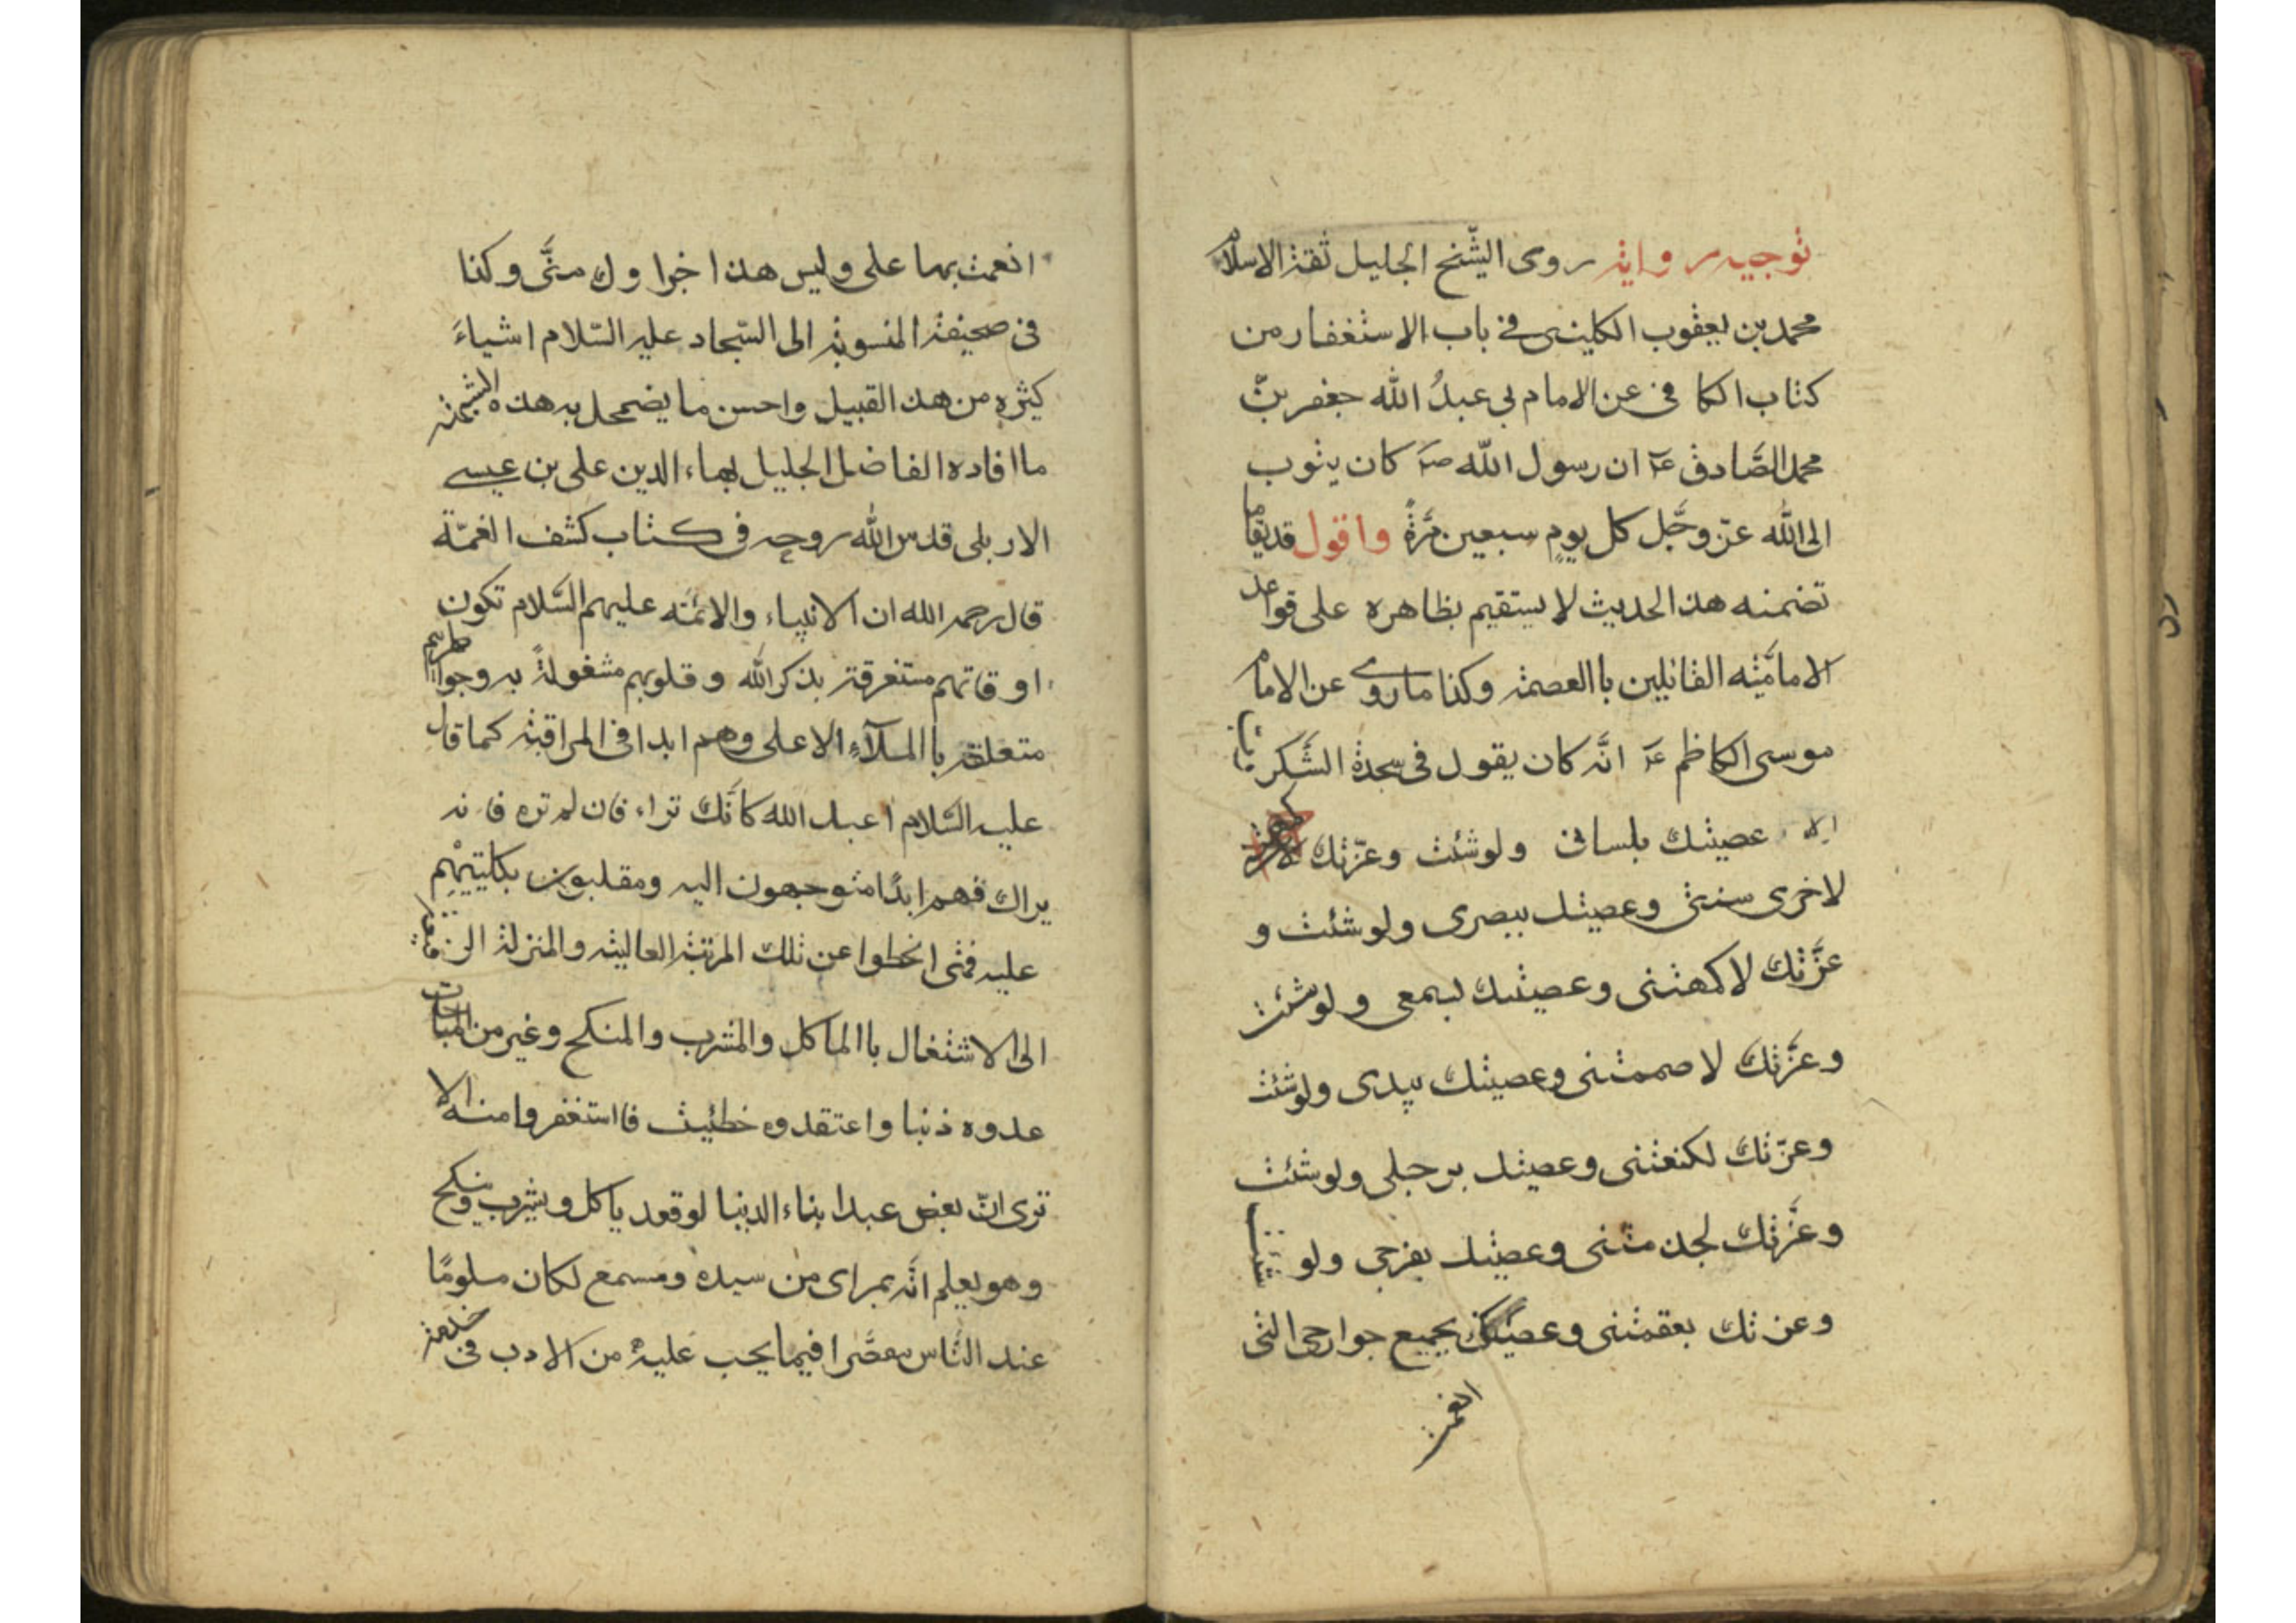 توجيه رواية روى الشّيخ الجليل ثقة الاسلام
محمد بن يعقوب الكلينى فى باب الاستغفار من
كتاب الكافى عن الامام ابى عبدُ الله جعفر بنّ
محمد الصَّادق عۤ ان رسول اللّه صۤ كان يتوب
الى الله عزّ وجَّل كل يومٍ سبعين مَرَّةً واقول قد يقا ما
تضمنه هذا الحديث لا يستقيم بظاهره على قواعد
الاماميَّته القائلين باالعصمة وكذا ما روى عن الامام
موسى الكاظم عۤ انَّه كان يقول فى سجدة الشَّكر
عصيتك بلسانى ولو شئت وعزّتك
لاخرى سنتى وعصيتك ببصرى ولو شئت و
عزَّتك لاكمهتنى وعصيتك لسمعى ولو شئت
وعزَّتك لا صممتنى وعصيتك بيدى ولو شئت
وعزّتك لكنعتنى وعصيتك برجلى ولو شئت
وعزَّتك لجذ متنى وعصيتك بفرجى ولو شئت
وعزتك بعقمتنى وعصيتك بجميع جوارحى التى
انعمت
انعمت بها على وليس هذا اخرا وك منَّى وكذا
فى صحيفة المنسوبة الى السّجاد عليه السّلام اشياءَ
كثيره من هذ القبيل واحسن ما يضمحل به هذه الشبهة
ما افاده الفاضل الجليل بهاء الدين على بن عيسى
الاربلى قدس الله روحه فى كتاب كشف الغمّة
قال رحمه الله ان الانبياء والائمّه عليهم السَّلام تكون
اوقاتهم مستغرقة بذكر الله وقلوبهم مشغولةً به وخواطرهم
متعلقة باالملآءِ الاعلى وهم ابدا فى المراقبة كما قال
عليه السَّلام اعبد الله كانَّك تراء فان لم تره فانه
يراك فهم ابدًا متوجهون اليه ومقلبون بكليتيهِم
عليه فمتى انحطوا عن تلك المرتبة العالية والمنزلة
الى الاشتغال باالماكل والمشرب والمنكح وغير من المباحات
عدوه ذنبا واعتقدوه خطيئة فااستغفروا منه الا
ترى انّ بعض عبد ابناء الدنيا لو قعد ياكل ويشرب وينكح
وهو يعلم انَّه بمراى من سيده ومسمع لكان ملومًا
عند النَّاس مقصَّرا فيما يجب عليه من الادب فى خدمة